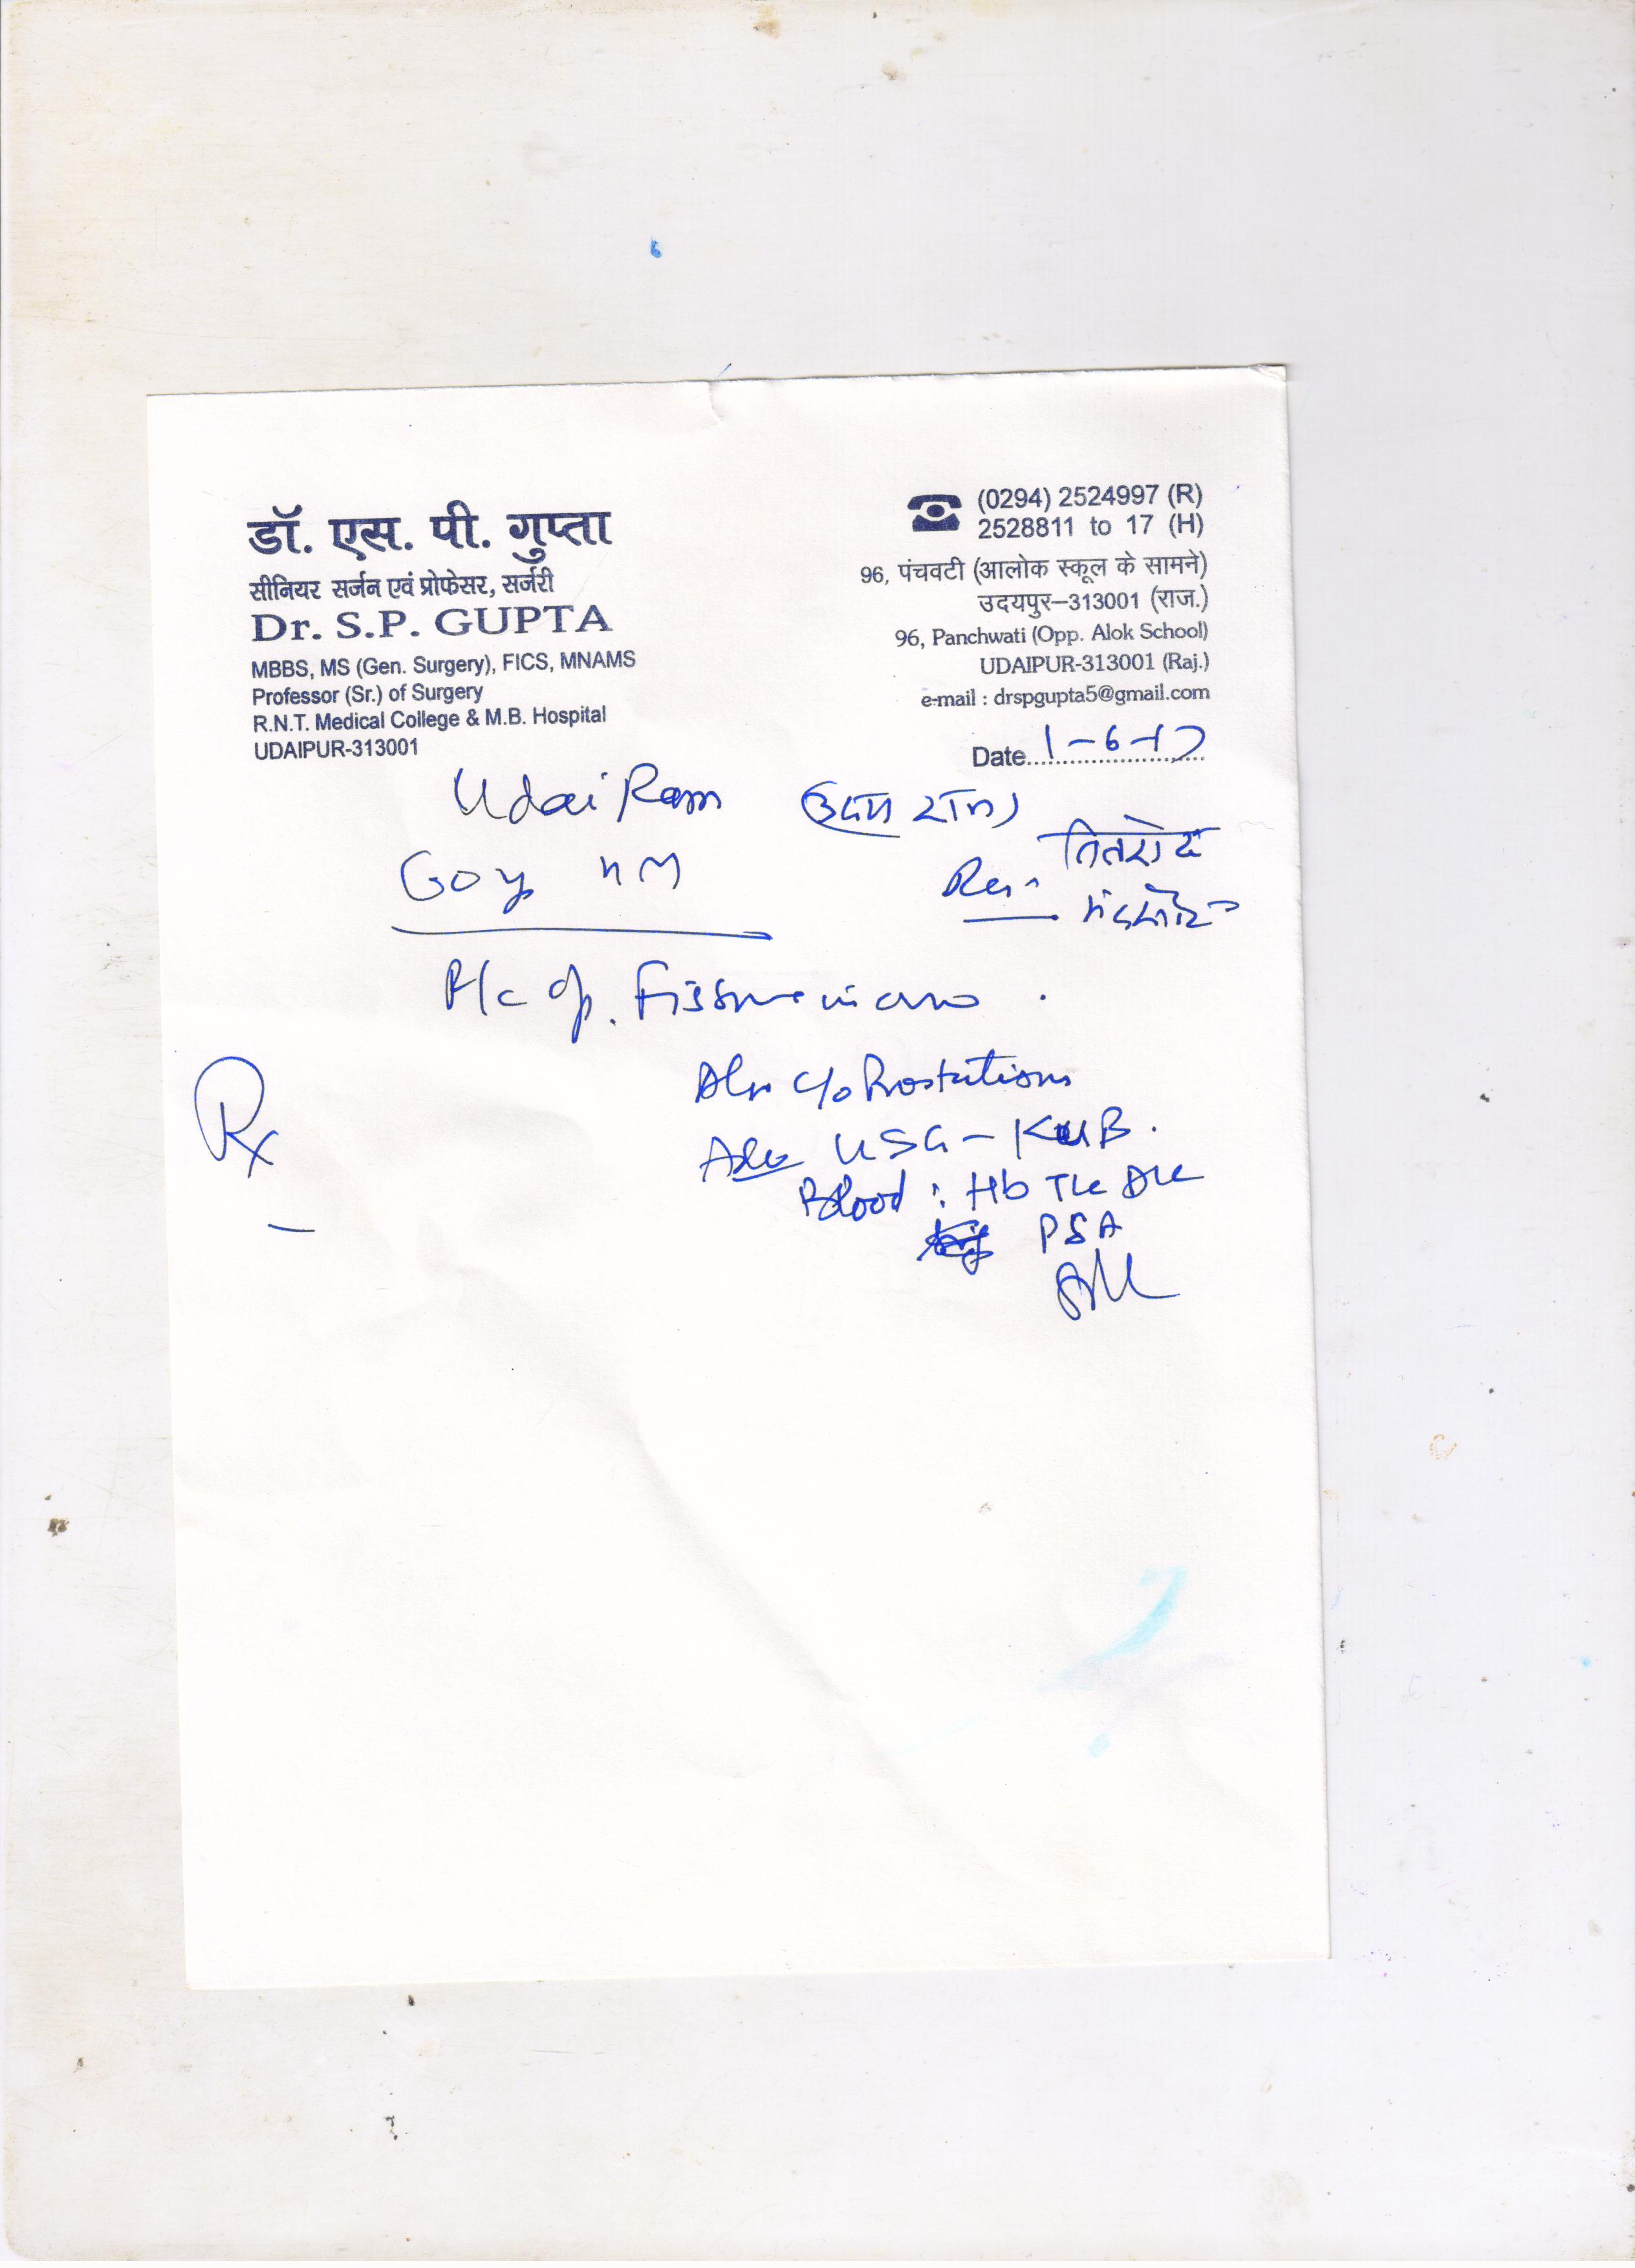 डॉ. एस. पी. गुप्ता
सीनियर सर्जन एवं प्रोफेसर, सर्जरी
Dr. S.P. GUPTA
MBBS, MS (Gen. Surgery), FICS, MNAMS
Professor (Sr.) of Surgery
R.N.T. Medical College & M.B. Hospital
UDAIPUR-313001
(0294) 2524997 (R)
2528811 to 17 (H)
96, पंचवटी (आलोक स्कूल के सामने)
उदयपुर–313001 (राज.)
96, Panchwati (Opp. Alok School)
UDAIPUR-313001 (Raj.)
e-mail : drspgupta5@gmail.com
Date 1-6-17
Udai Ram
60y
Fissure in ano
Rx
c/o Prostatism
Adv USG - KUB.
Blood : Hb TLC DLC
PSA